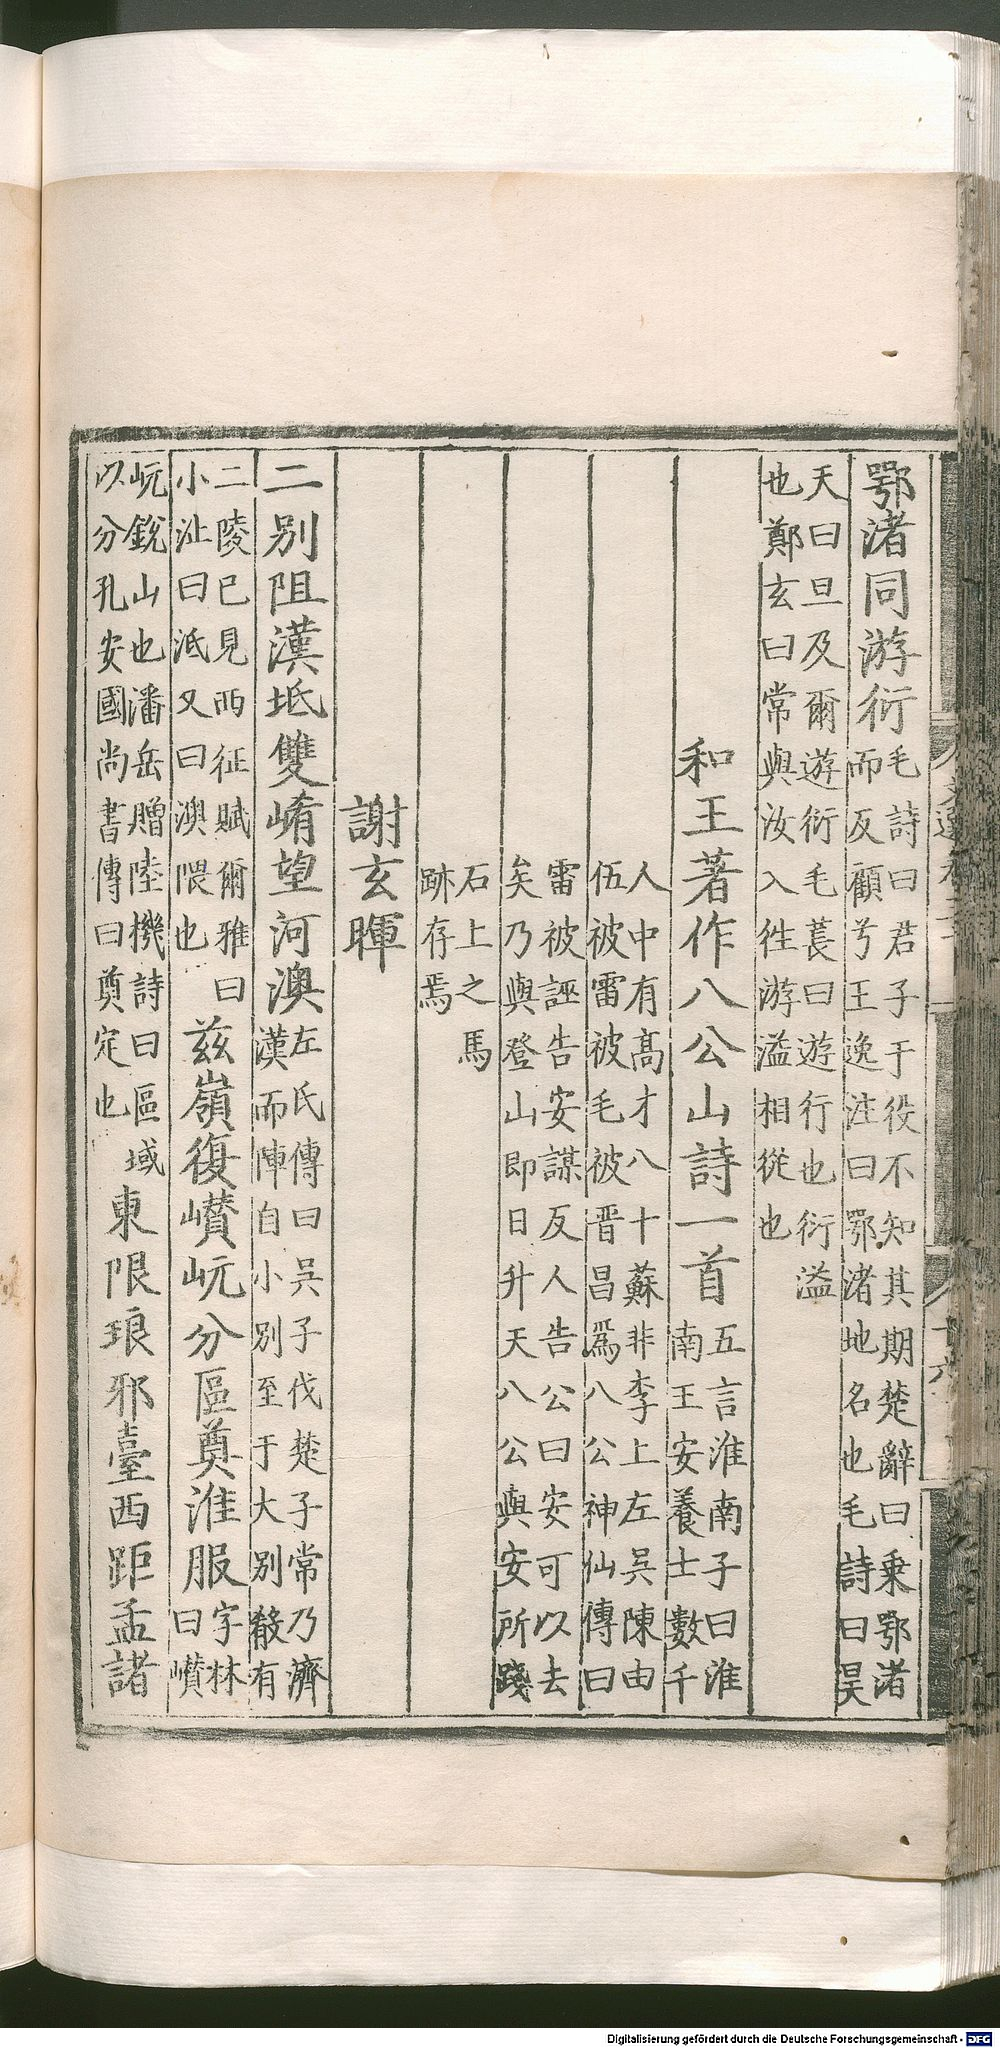 鄂渚同游衍毛詩曰君子于役不知其期楚辭曰乘鄂渚
而反顧兮王逸注曰鄂渚地名也毛詩曰昊
天曰旦及爾遊衍毛萇曰遊行也衍溢
也鄭玄曰常與汝入往游溢相從也
和王著作八公山詩一首五言淮南子曰淮
南王安養士數千
人中有高才八十蘇非李上左吳陳由
伍被雷被毛被晋昌爲八公神仙傳曰
雷被誣告安謀反人告公曰安可以去
矣乃與登山即日升天八公與安所踐
石上之馬
跡存焉
謝玄暉
二别阻漢坻雙崤望河澳左氏傳曰吳子伐楚子常乃濟
漢而陣自小别至于大别殽有
二陵已見西征賦爾雅曰
小沚曰泜又曰澳隈也
茲嶺復巑岏分區奠淮服字林
曰巑
岏銳山也潘岳贈陸機詩曰區域
以分孔安國尚書傳曰奠定也
東限琅邪臺西距孟諸
Digitalisierung gefördert durch die Deutsche Forschungsgemeinschaft - DFG